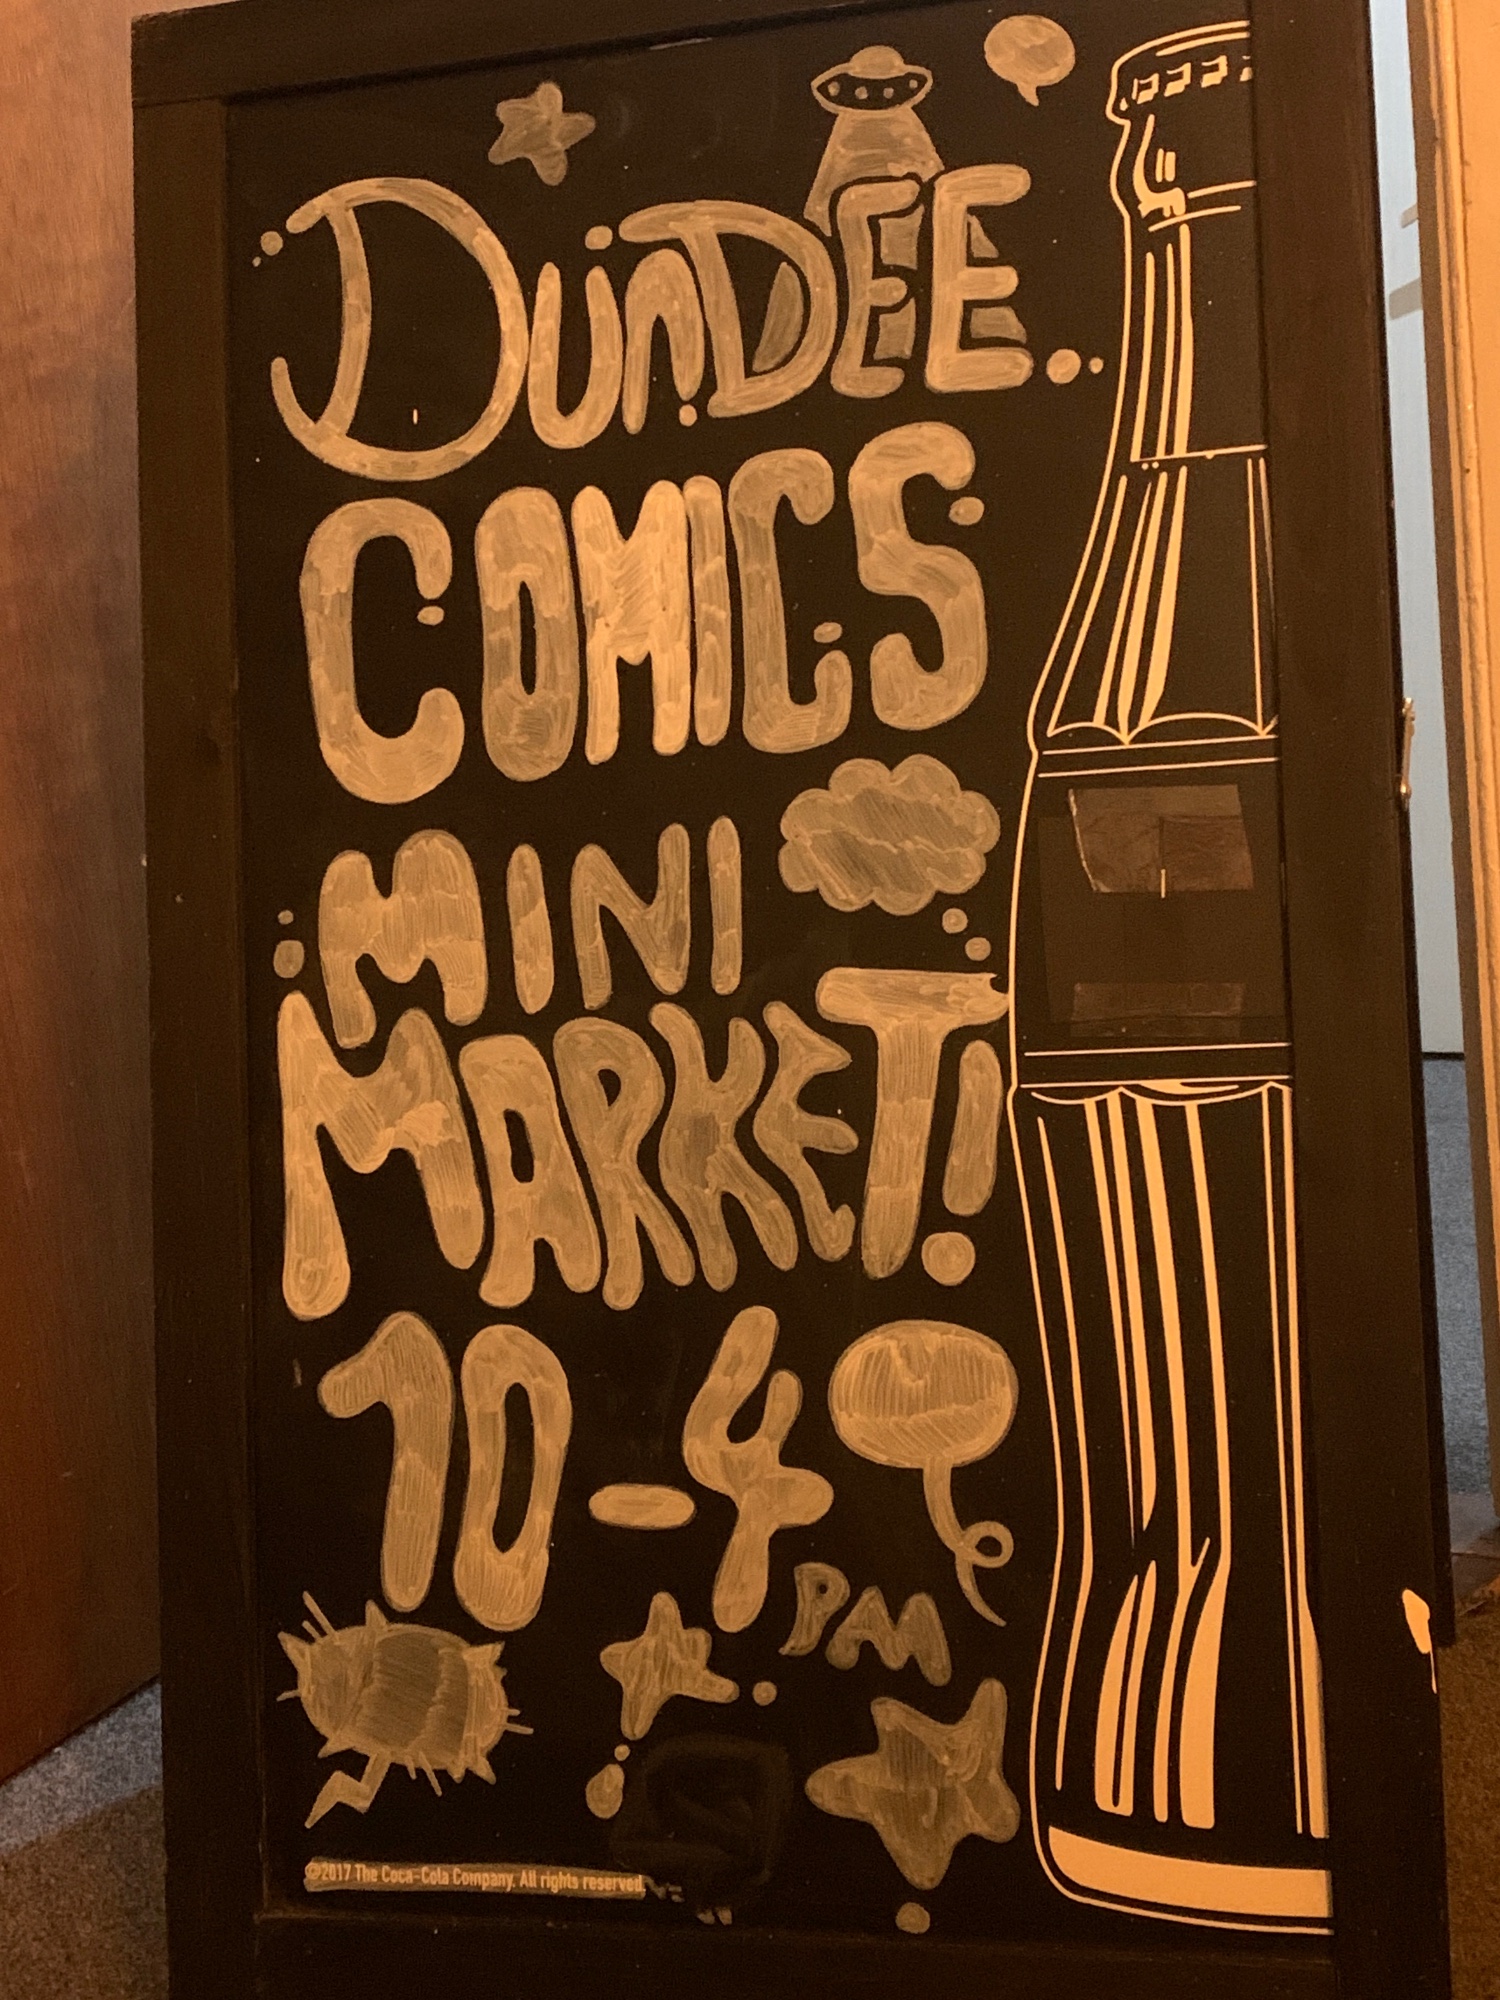 DunDEE
COMICS
MINI
MARKET!
10-4
PM
©2017 The Coca-Cola Company. All rights reserved.